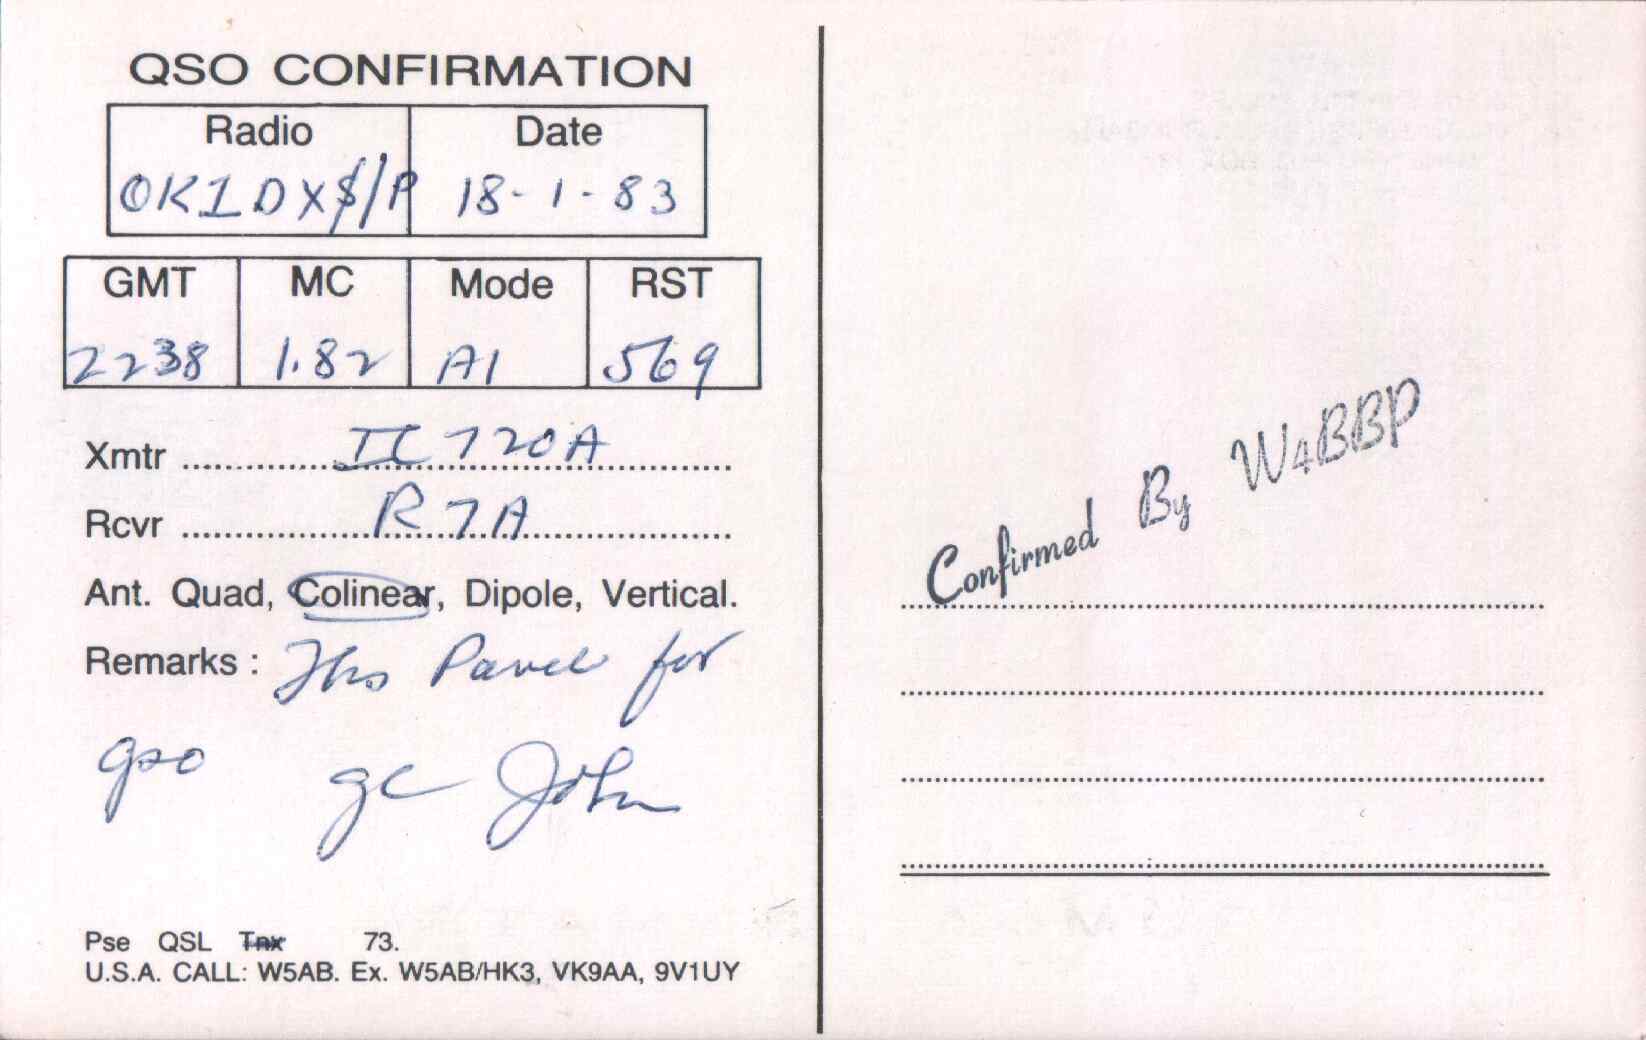 QSO CONFIRMATION
Radio Date
OK1DXS/P 18-1-83
GMT MC Mode RST
2238 1.82 A1 569
Xmtr IC 720A
Rcvr R7A
Ant. Quad, Colinear, Dipole, Vertical.
Remarks : Tks Pavel for
qso gl John
Pse QSL Tnx 73.
U.S.A. CALL: W5AB. Ex. W5AB/HK3, VK9AA, 9V1UY
Confirmed By W4BBP